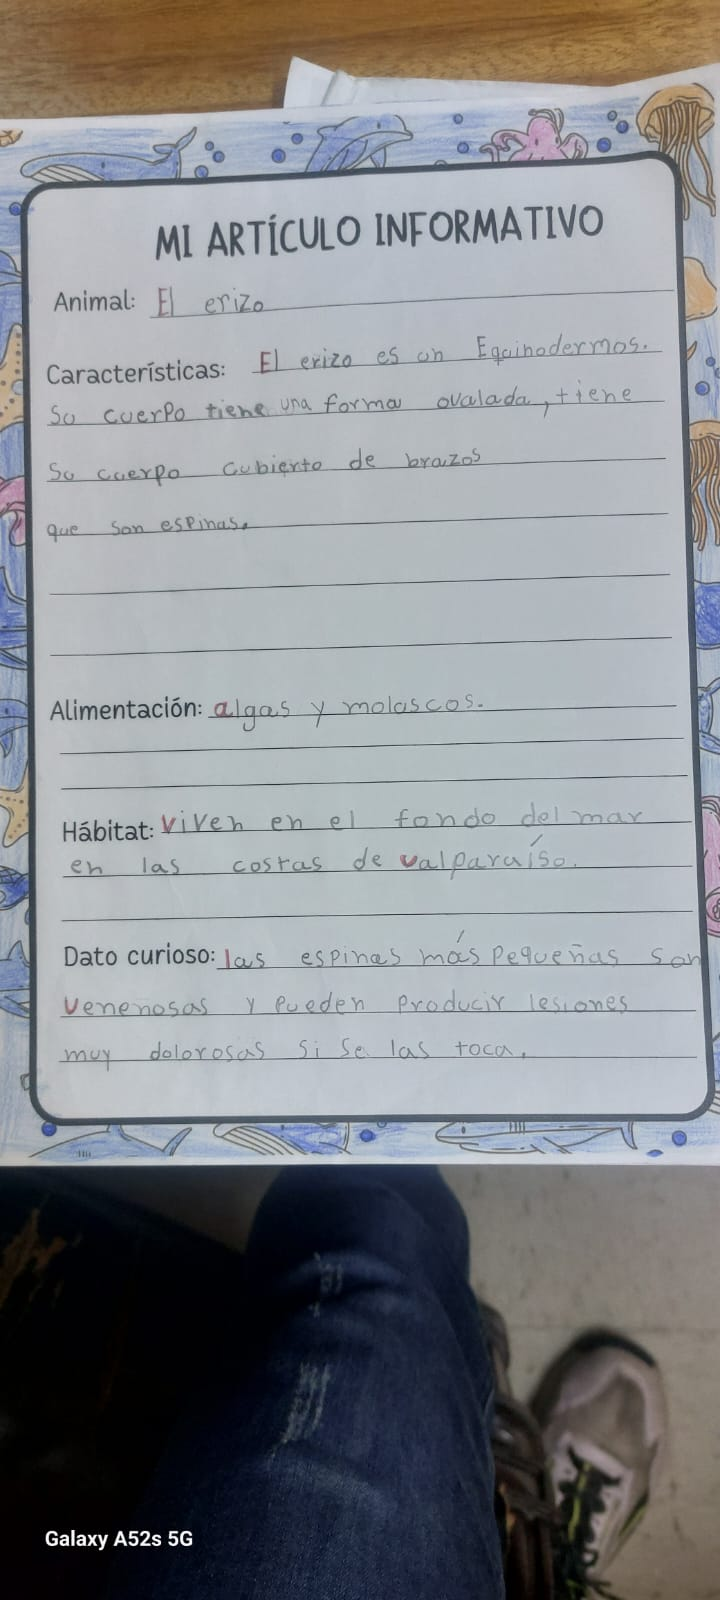 MI ARTÍCULO INFORMATIVO
Animal: El erizo
Características: El erizo es un Equinodermos.
Su cuerpo tiene una forma ovalada, tiene
Su cuerpo cubierto de brazos
que son espinas.
Alimentación: algas y moluscos.
Hábitat: viven en el fondo del mar
en las costas de valparaíso.
Dato curioso: las espinas más pequeñas son
venenosas y pueden producir lesiones
muy dolorosas si se las toca.
Galaxy A52s 5G